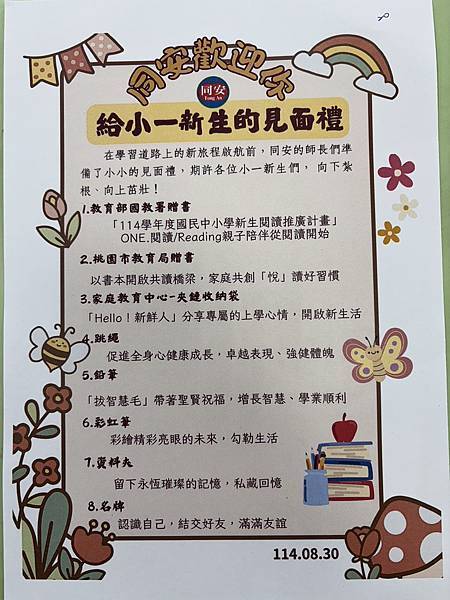 同安歡迎你
同安
Tong An
給小一新生的見面禮
在學習道路上的新旅程啟航前，同安的師長們準
備了小小的見面禮，期許各位小一新生們， 向下紮
根、向上茁壯！
1.教育部國教署贈書
「114學年度國民中小學新生閱讀推廣計畫」
ONE.閱讀/Reading親子陪伴從閱讀開始
2.桃園市教育局贈書
以書本開啟共讀橋梁，家庭共創「悅」讀好習慣
3.家庭教育中心-夾鏈收納袋
「Hello！新鮮人」分享專屬的上學心情，開啟新生活
4.跳繩
促進全身心健康成長，卓越表現、強健體魄
5.鉛筆
「拔智慧毛」帶著聖賢祝福，增長智慧、學業順利
6.彩虹筆
彩繪精彩亮眼的未來，勾勒生活
7.資料夾
留下永恆璀璨的記憶，私藏回憶
8.名牌
認識自己，結交好友，滿滿友誼
114.08.30